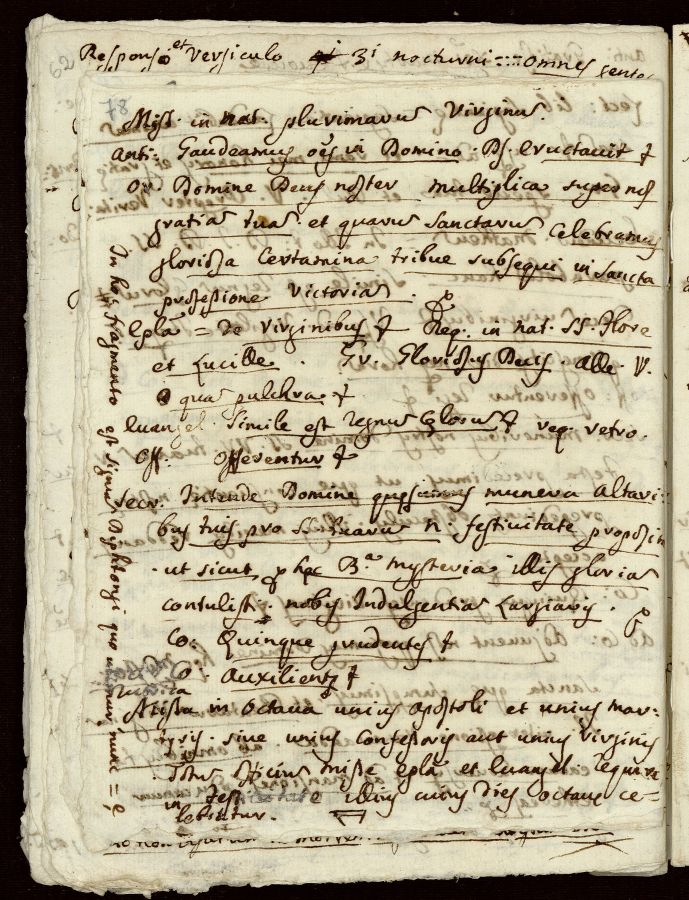 62
Responso et Versiculo 3i nocturni :::: omnes
78
Miss. in nat. plurimarum Virginum.
Anti: Gaudeamus oēs in Domino. Ps. eructavit
Oro Domine Deus noster multiplica super nos
gratiam tuam. et quarum sanctarum celebramus
gloriosa Certamina tribue subsequi in sancta
professione victoriam.
Epla = De Virginibus Req. in nat. SS. Flore
et Lucille. Gr. Gloriosus Deus Alle. V.
quam pulchra
Euangel. Simile est regnum Celorum req. retro.
Off. Offerentur
Secr. Intende Domine quesumus munera Altari
bus tuis pro SS. tuarum n. festivitate proposita
ut sicut p hęc Ba. mysteria illis gloriam
contulisti. nobis Indulgentiam Largiaris.
Co: Quinque prudentes
Co. Auxilientur
Missa in octava unius apostoli et unius mar=
tyris. sive unius Confessoris aut unius virginis
officium misse epla et Euangel. require
in festivitate illius cuius dies octavus ce=
lebratur.
In hoc fragmento est signum Diphtongi quo utimur nunc = ę